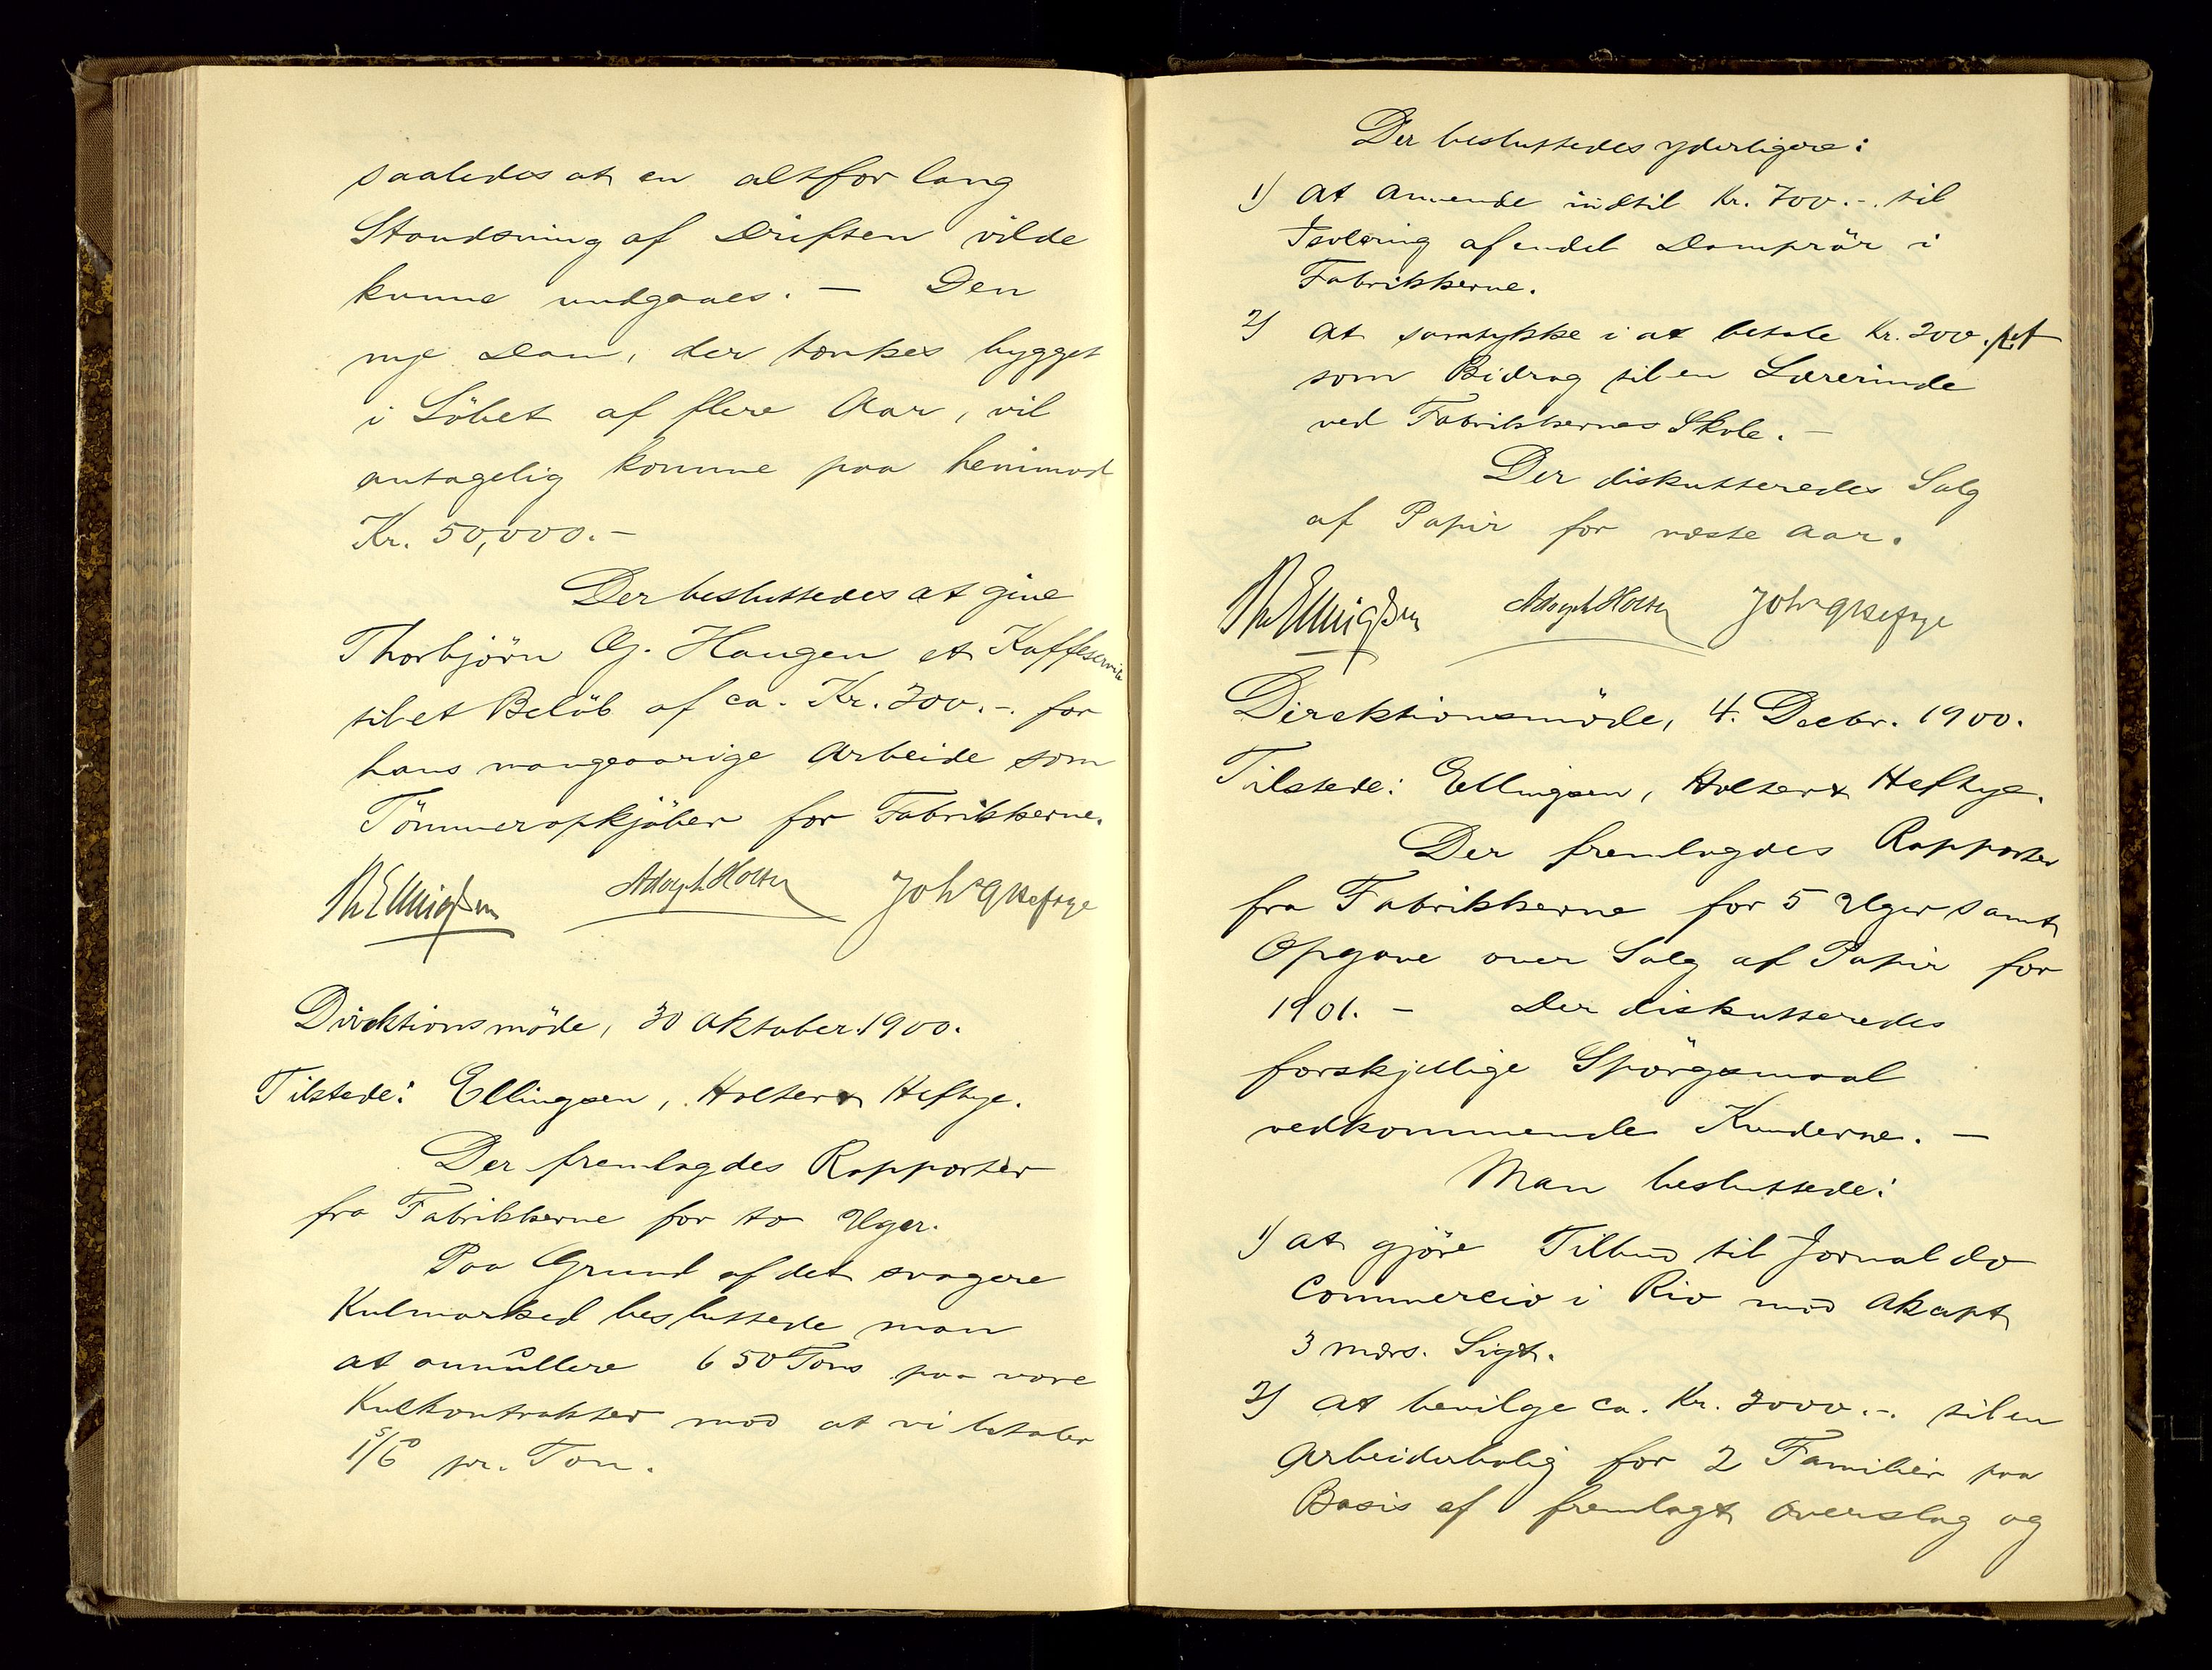 saaledes at en altfor lang
Standsning af Driften vilde
kunne undgaaes. — Den
nye Dam, der tænkes bygget
i Löbet af flere Aar, vil
antagelig komme paa henimod
Kr. 50,000.-
Der besluttedes at give
Thorbjörn Gj. Haugen et Kaffeservice
til et Belöb af ca. Kr. 300.-. for
hans mangeaarige Arbeide som
Tömmeropkjöber for Fabrikkerne.
Th Ellingsen Adolph Holter Johs G Heftye
Direktionsmöde, 30 Oktober 1900.
Tilstede: Ellingsen, Holter & Heftye.
Der fremlagdes Rapporter
fra Fabrikkerne for to Uger.
Paa Grund af det svagere
Kulmarked besluttede man
at annullere 650 Tons paa vore
Kulkontrakter mod at vi betaler
1s/6d pr. Ton.
Der besluttedes yderligere:
1) at anvende indtil Kr. 700.-. til
Isolering af endel Damprör i
Fabrikkerne.
2) at samtykke i at betale Kr. 200.
som Bidrag til en Lærerinde
ved Fabrikkernes Skole. —
Der diskutteredes Salg
af Papir for næste Aar.
Th Ellingsen Adolph Holter Johs G Heftye
Direktionsmöde, 4. Decbr. 1900.
Tilstede: Ellingsen, Holter & Heftye.
Der fremlagdes Rapporter
fra Fabrikkerne for 5 Uger samt
Opgave over Salg af Papir for
1901. - Der diskutteredes
forskjellige Spörgsmaal
vedkommende Kunderne. —
Man besluttede:
1) at gjöre Tilbud til Jornal do
Commercio i Rio mod Akcept
3 mdrs. Sigt.
2) at bevilge ca. Kr. 3000.-. til en
Arbeiderbolig for 2 Familier paa
Basis af fremlagt Overslag og